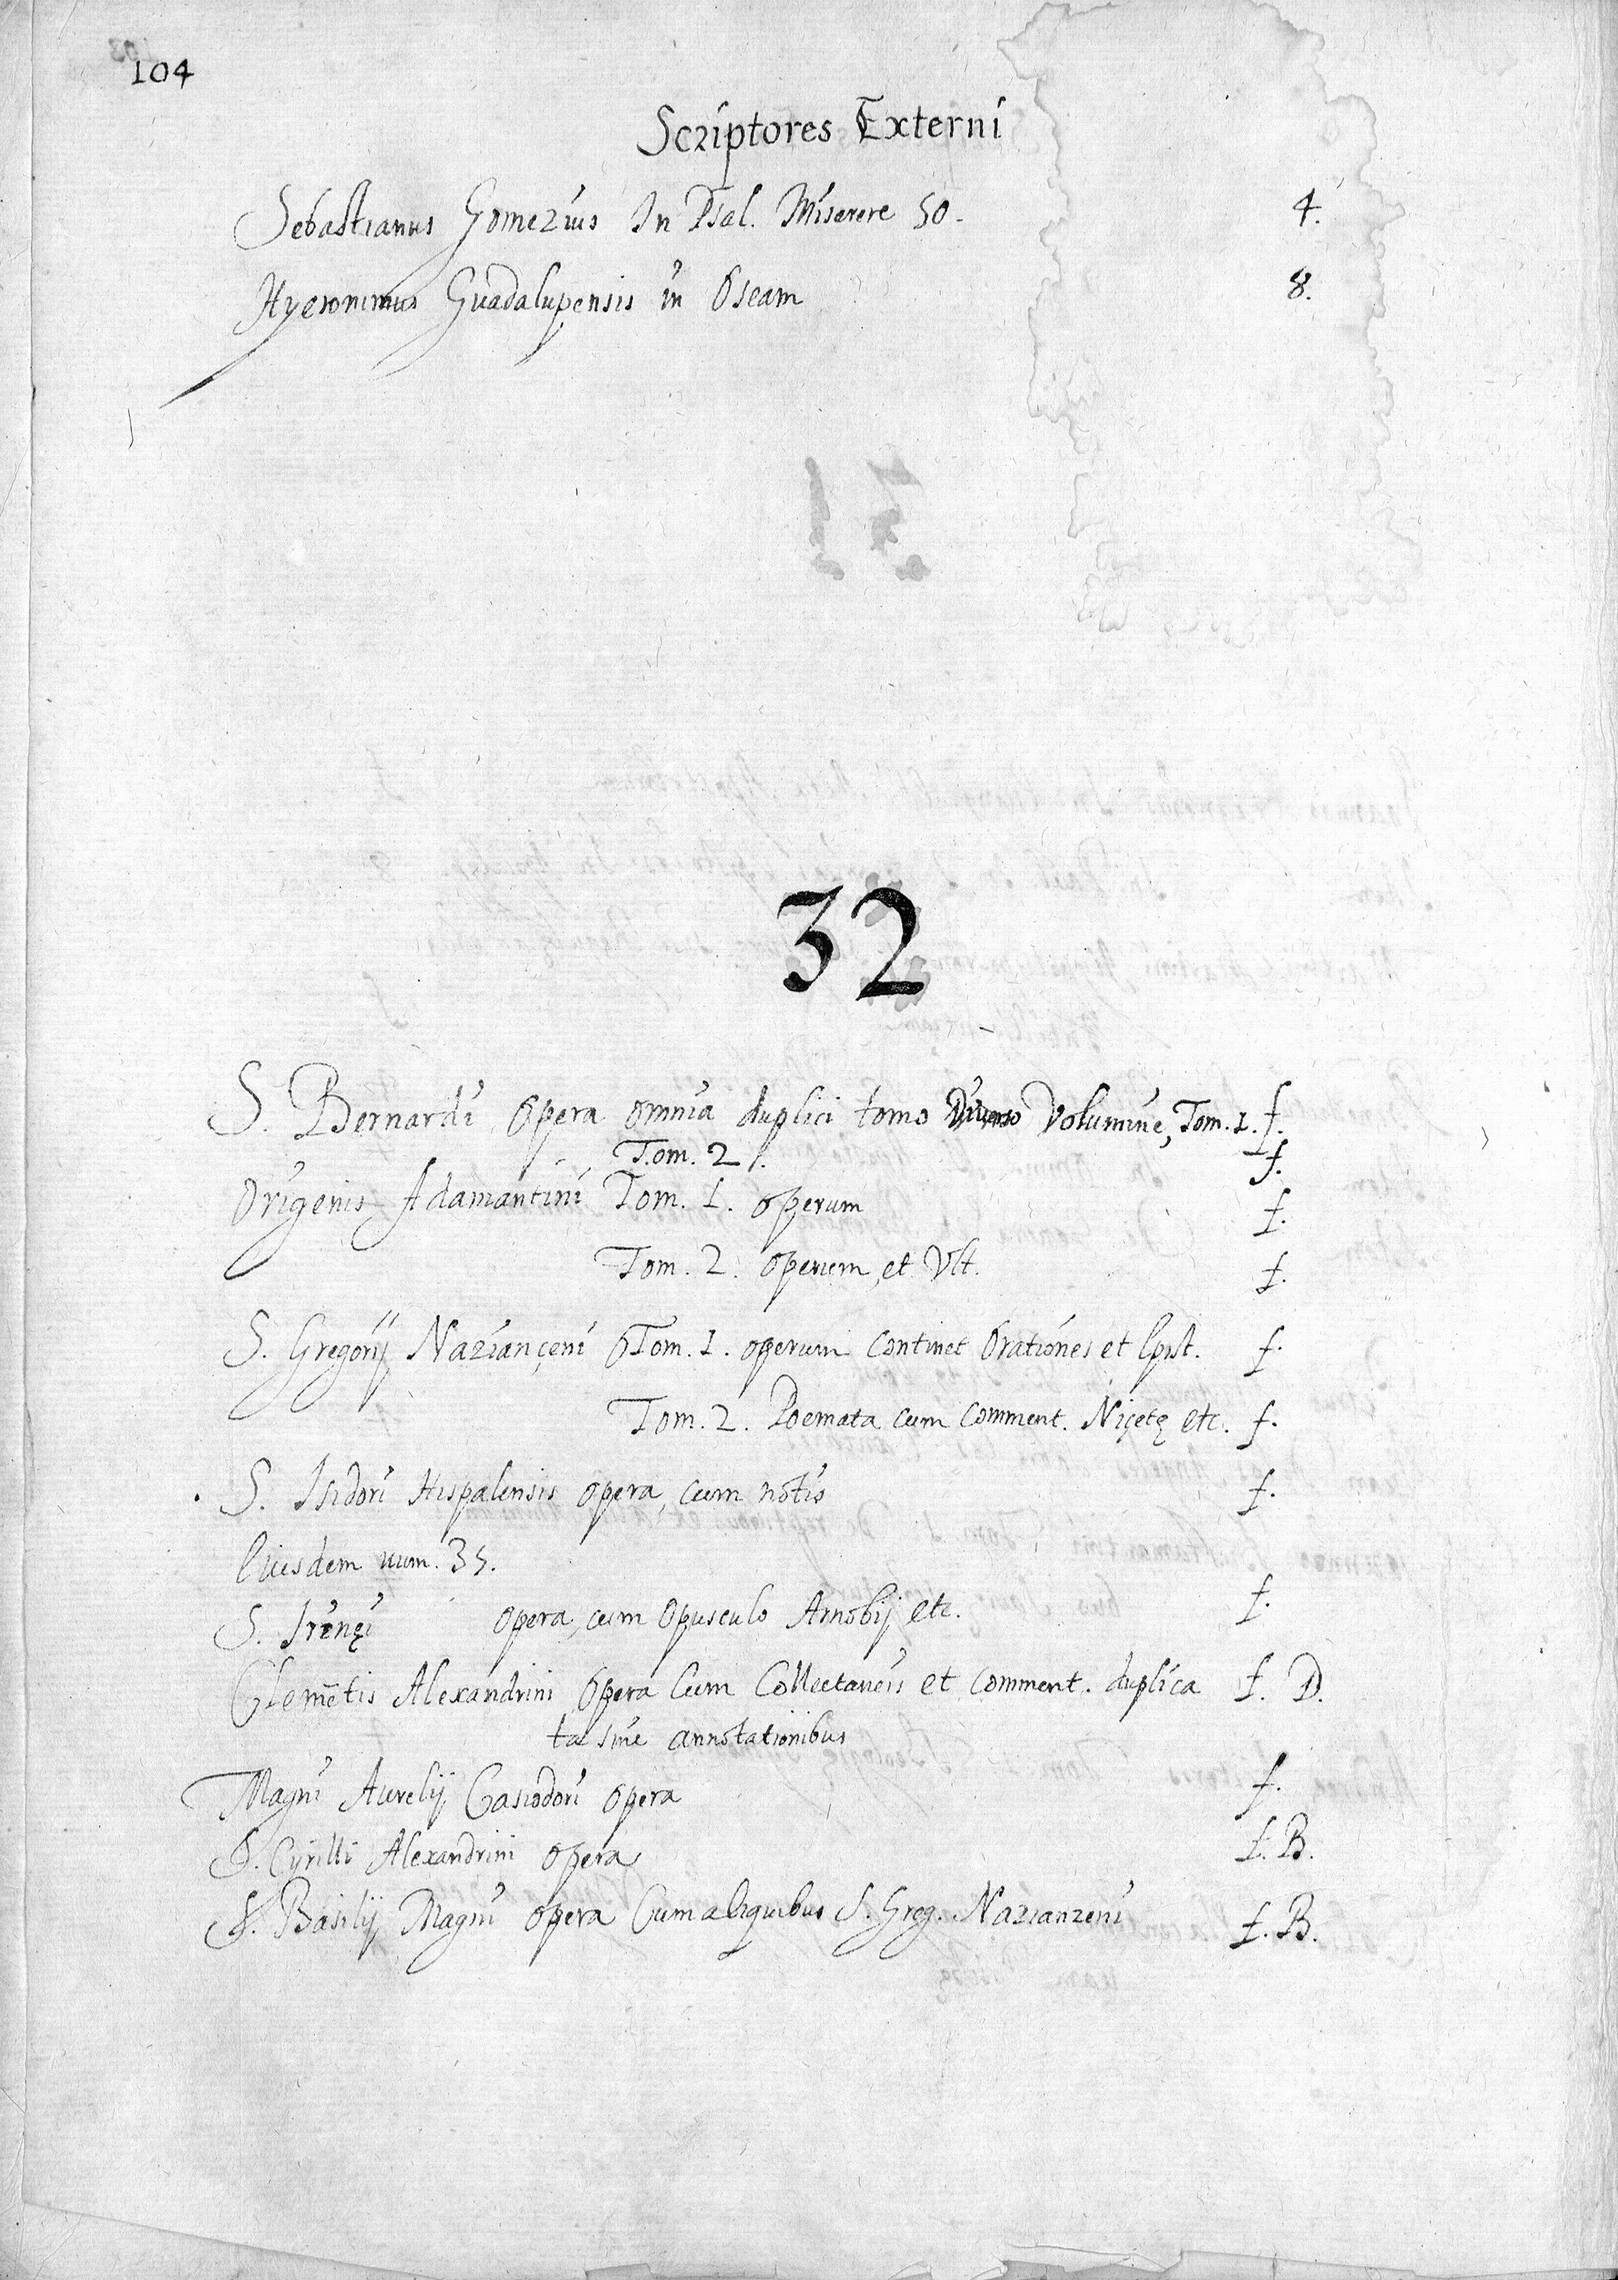 104
Scriptores Externi
Sebastianus Gomezius In Psal. Miserere 50. 4.
Hyeronimus Guadalupensis in Oseam 8.
32
S. Bernardi Opera omnia duplici tomo Diverso Volumine, Tom. 1. f.
Tom. 2. f.
Origenis Adamantini Tom. 1. operum f.
Tom. 2. operum, et Vlt. f.
S. Gregorij Naziançeni Tom. 1. operum continet Orationes et Epist. f.
Tom. 2. Poemata cum comment. Niçetę etc. f.
S. Isidori Hispalensis opera, cum notis f.
Eiusdem num. 35.
S. Irenęi opera, cum opusculo Arnobij etc. f.
Clemētis Alexandrini Opera Cum Collectaneis et comment. duplica f. D.
ta sine annotationibus
Magni Aurelij Casiodori opera f.
S. Cyrilli Alexandrini opera f. B.
S. Basilij Magni opera Cum aliquibus S. Greg. Nazianzeni f. B.